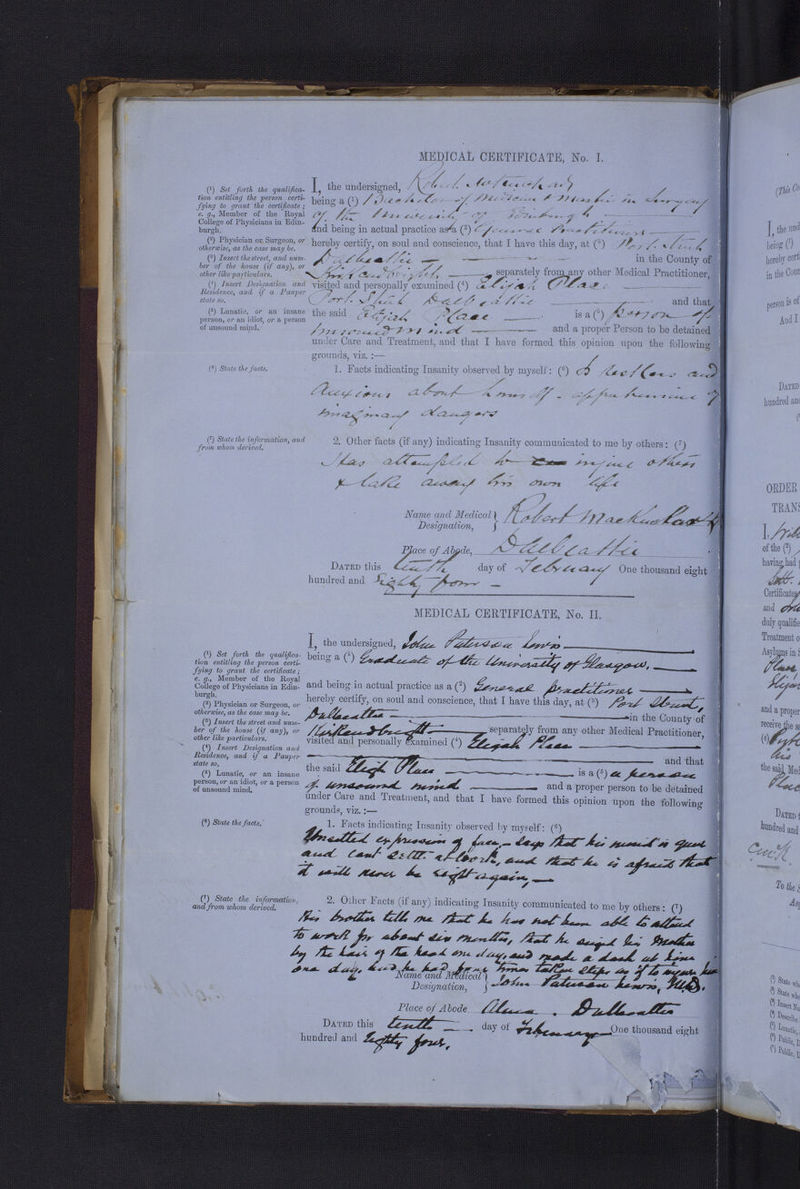 MEDICAL CERTIFICATE, No. I.
(¹) Set forth the qualifica-
tion entitling the person certi-
fying to grant the certificate;
e. g., Member of the Royal
College of Physicians in Edin-
burgh.
(²) Physician or Surgeon, or
otherwise, as the case may be.
(³) Insert the street, and num-
ber of the house (if any), or
other like particulars.
(⁴) Insert Designation and
Residence, and if a Pauper
state so.
(⁵) Lunatic, or an insane
person, or an idiot, or a person
of unsound mind.
(⁶) State the facts.
(⁷) State the information, and
from whom derived.
I, the undersigned, Robert
being a (¹) Bachelor of Medicine & Master in Surgery
of the University of Edinburgh
and being in actual practice as a (²) General Practitioner
hereby certify, on soul and conscience, that I have this day, at (³) Port Street
Dalbeattie in the County of
Kirkcudbright separately from any other Medical Practitioner,
visited and personally examined (⁴) Elijah Place
Port Street Dalbeattie and that
the said Elijah Place is a (⁵) person of
unsound mind and a proper Person to be detained
under Care and Treatment, and that I have formed this opinion upon the following
grounds, viz.:—
1. Facts indicating Insanity observed by myself: (⁶) Is restless and
anxious about himself - apprehensive of
imaginary dangers
2. Other facts (if any) indicating Insanity communicated to me by others: (⁷)
Has attempted to injure others
& take away his own life
Name and Medical Designation, Robert
Place of Abode, Dalbeattie
DATED this tenth day of February One thousand eight
hundred and Eighty four -
MEDICAL CERTIFICATE, No. II.
(¹) Set forth the qualifica-
tion entitling the person certi-
fying to grant the certificate;
e. g., Member of the Royal
College of Physicians in Edin-
burgh.
(²) Physician or Surgeon, or
otherwise, as the case may be.
(³) Insert the street and num-
ber of the house (if any), or
other like particulars.
(⁴) Insert Designation and
Residence, and if a Pauper
state so.
(⁵) Lunatic, or an insane
person, or an idiot, or a person
of unsound mind.
(⁶) State the facts.
(⁷) State the information,
and from whom derived.
I, the undersigned, John Paterson Lewis
being a (¹) Graduate of the University of Glasgow,
and being in actual practice as a (²) General practitioner
hereby certify, on soul and conscience, that I have this day, at (³) Port Street,
Dalbeattie in the County of
Kirkcudbright separately from any other Medical Practitioner,
visited and personally examined (⁴) Elijah Place
and that
the said Elijah Place is a (⁵) a person
of unsound mind and a proper person to be detained
under Care and Treatment, and that I have formed this opinion upon the following
grounds, viz.:—
1. Facts indicating Insanity observed by myself: (⁶)
Unsettled expression of face, - Says that his mind is queer
and cant settle at work, and that he is afraid that
it will never be right again,
2. Other Facts (if any) indicating Insanity communicated to me by others: (⁷)
His brother tells me that he has not been able to attend
to work for about six months, that he seized his Mother
by the hair of the head one day, and made a dash at him
one day, and he had times taken steps as if to injure
Name and Medical Designation, John Paterson Lewis, M.D.
Place of Abode Alma. Dalbeattie
DATED this tenth day of February One thousand eight
hundred and Eighty four,
I, the und
being (¹)
hereby cert
in the Coun
person is of
And I
DATED
hundred and
ORDER
TRANS
of the (²)
having had
Certificates
and
duly qualifie
Treatment o
Asylums in
Place
Elijah
and a proper
receive the s
the said
Place
DATED
hundred and
To the